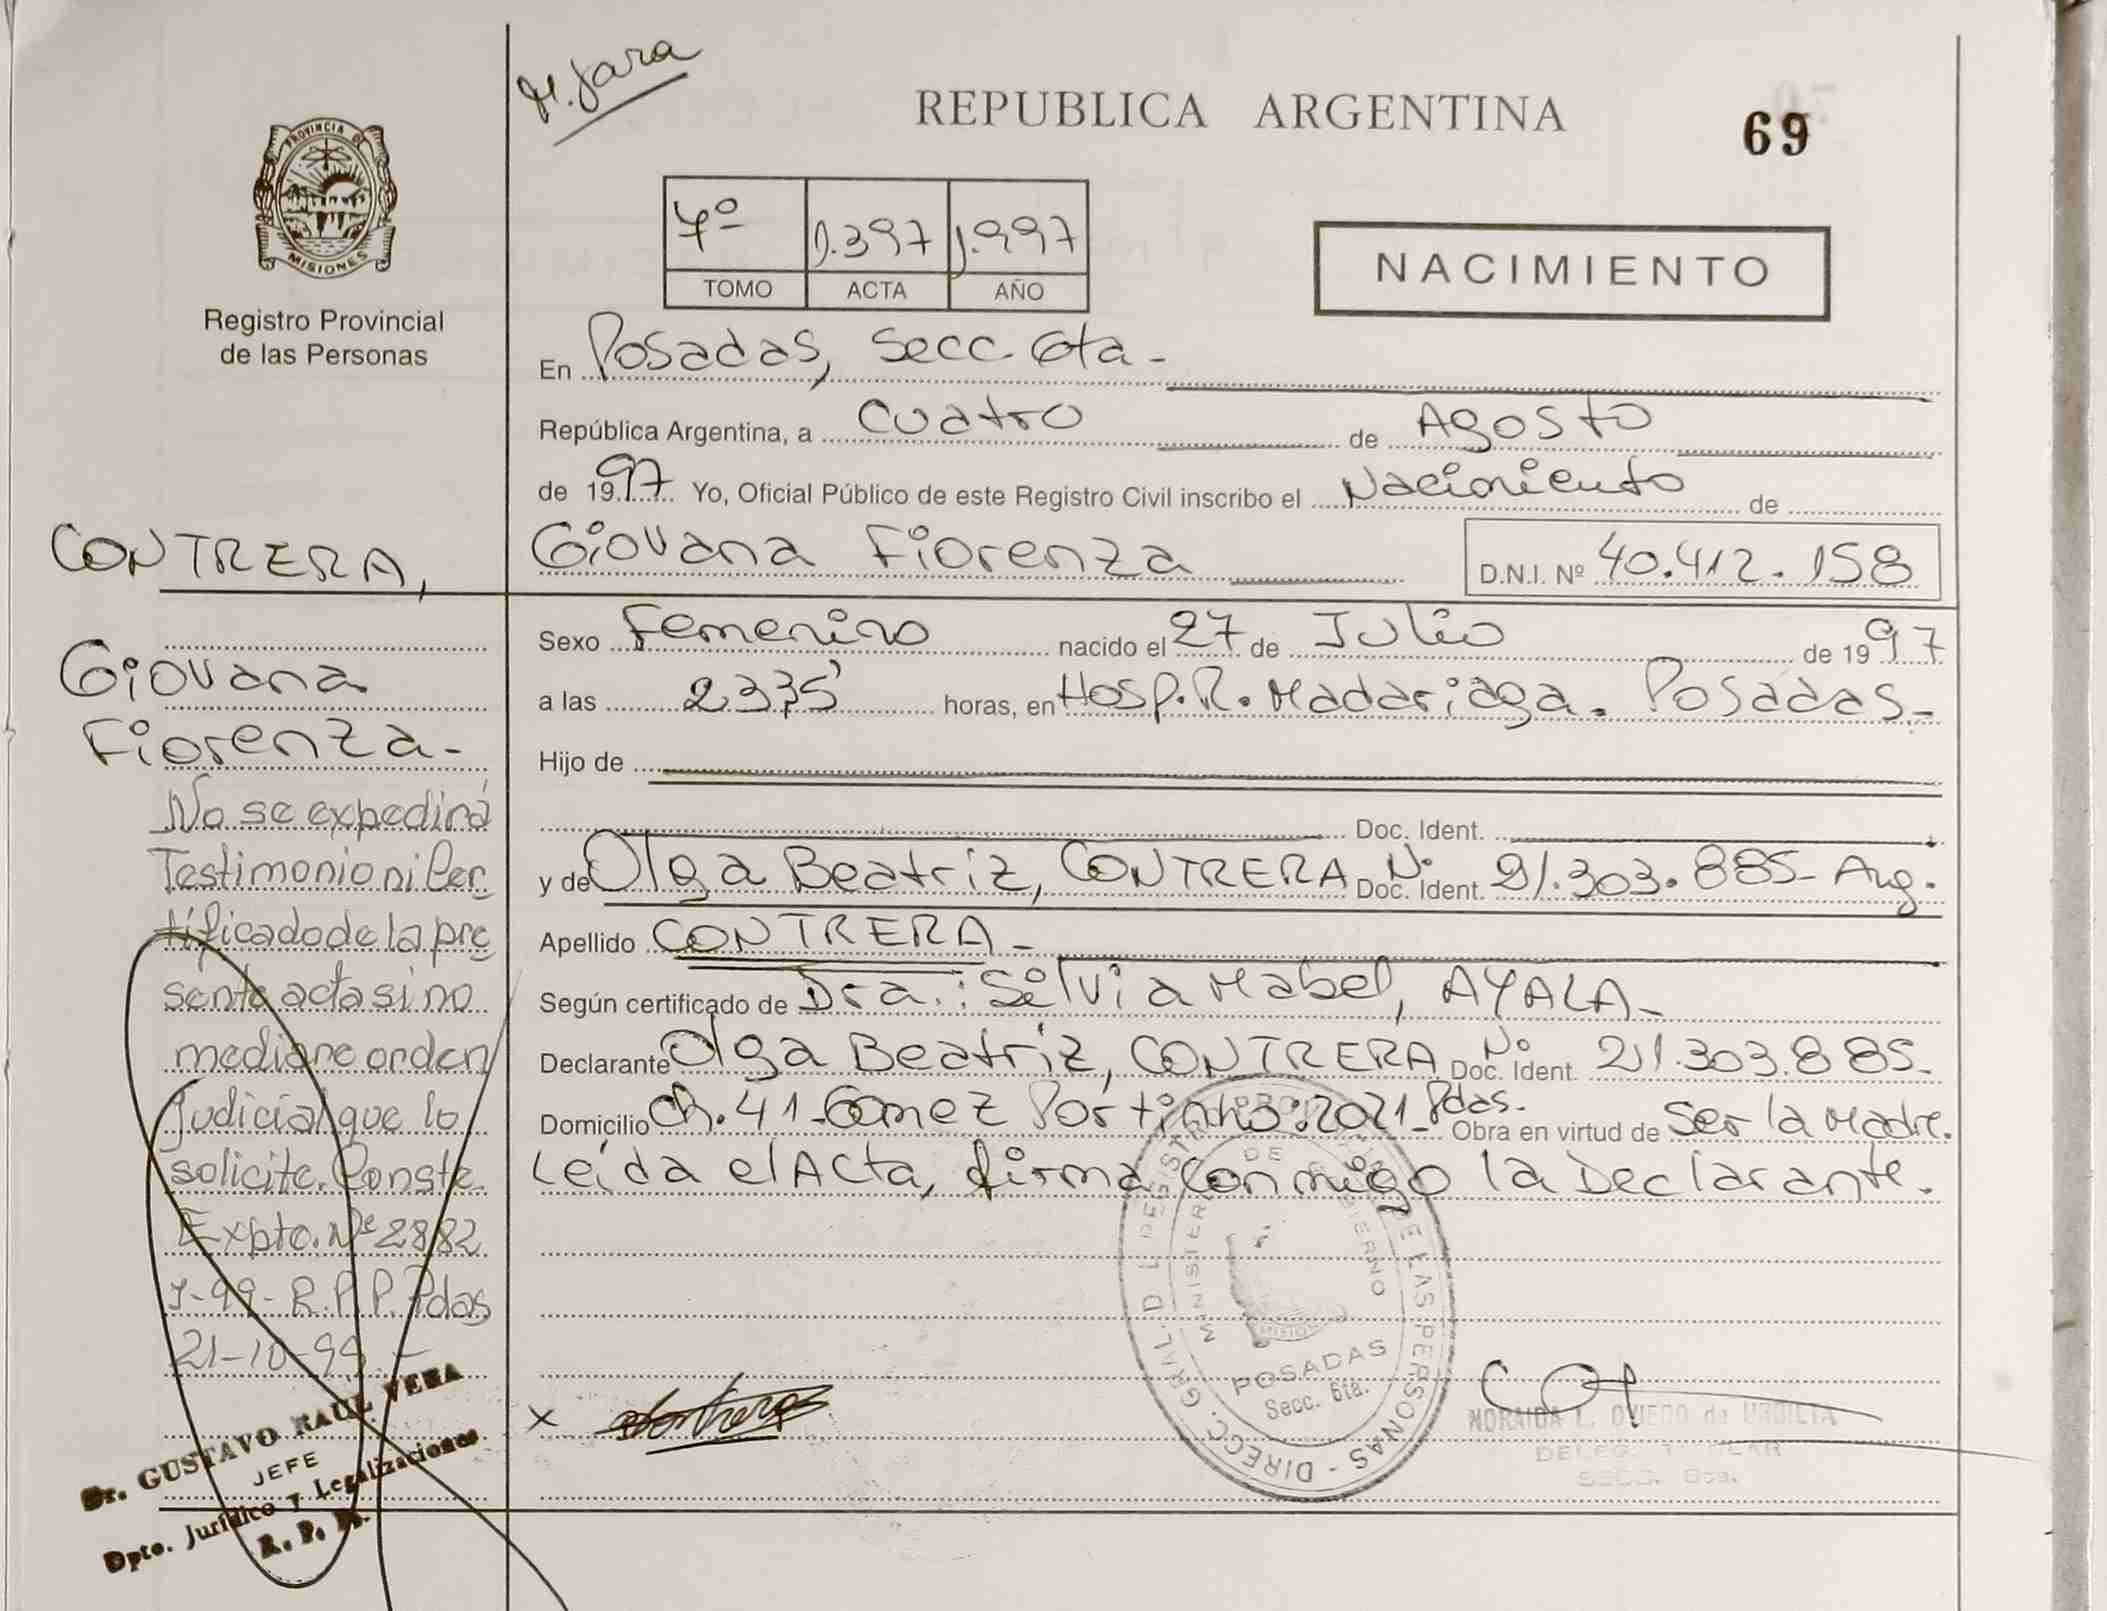 M. Jara
REPUBLICA ARGENTINA
69
PROVINCIA DE
MISIONES
Registro Provincial
de las Personas
7º 1.397 1.997
TOMO ACTA AÑO
NACIMIENTO
En Posadas, Secc. 6ta -
República Argentina, a cuatro de Agosto
de 1997 Yo, Oficial Público de este Registro Civil inscribo el Nacimiento de
Giovana Fiorenza D.N.I. Nº 40.412.158
Sexo Femenino nacido el 27 de Julio de 1997
a las 23,35' horas, en Hosp. R. Madariaga. Posadas.-
Hijo de
Doc. Ident.
y de Olga Beatriz, CONTRERA Doc. Ident. Nº 21.303.885- Arg.
Apellido CONTRERA -
Según certificado de Dra.: Silvia Mabel, AYALA -
Declarante Olga Beatriz, CONTRERA Doc. Ident. Nº 21.303.885-
Domicilio Ch. 41-Gomez Portinho: 2021- Pdas. Obra en virtud de Ser la Madre.
Leída el Acta, firma conmigo la Declarante.
CONTRERA,
Giovana
Fiorenza -
No se expedirá
Testimonio ni Cer
tificado de la pre
sente acta si no
mediane orden
Judicial que lo
solicite. Conste.
Expto. Nº 2882
J-99- R.P.P. Pdas
21-10-99.-
Dr. GUSTAVO RAUL VERA
JEFE
Dpto. Jurídico y Legalizaciones
R. P. P.
X
DIRECC. GRAL. DEL REGISTRO PROVINCIAL DE LAS PERSONAS
MINISTERIO DE GOBIERNO
MISIONES
POSADAS
Secc. 6ta.
NORAIDA L. OVIEDO de URDILIA
SECC. 6ta.